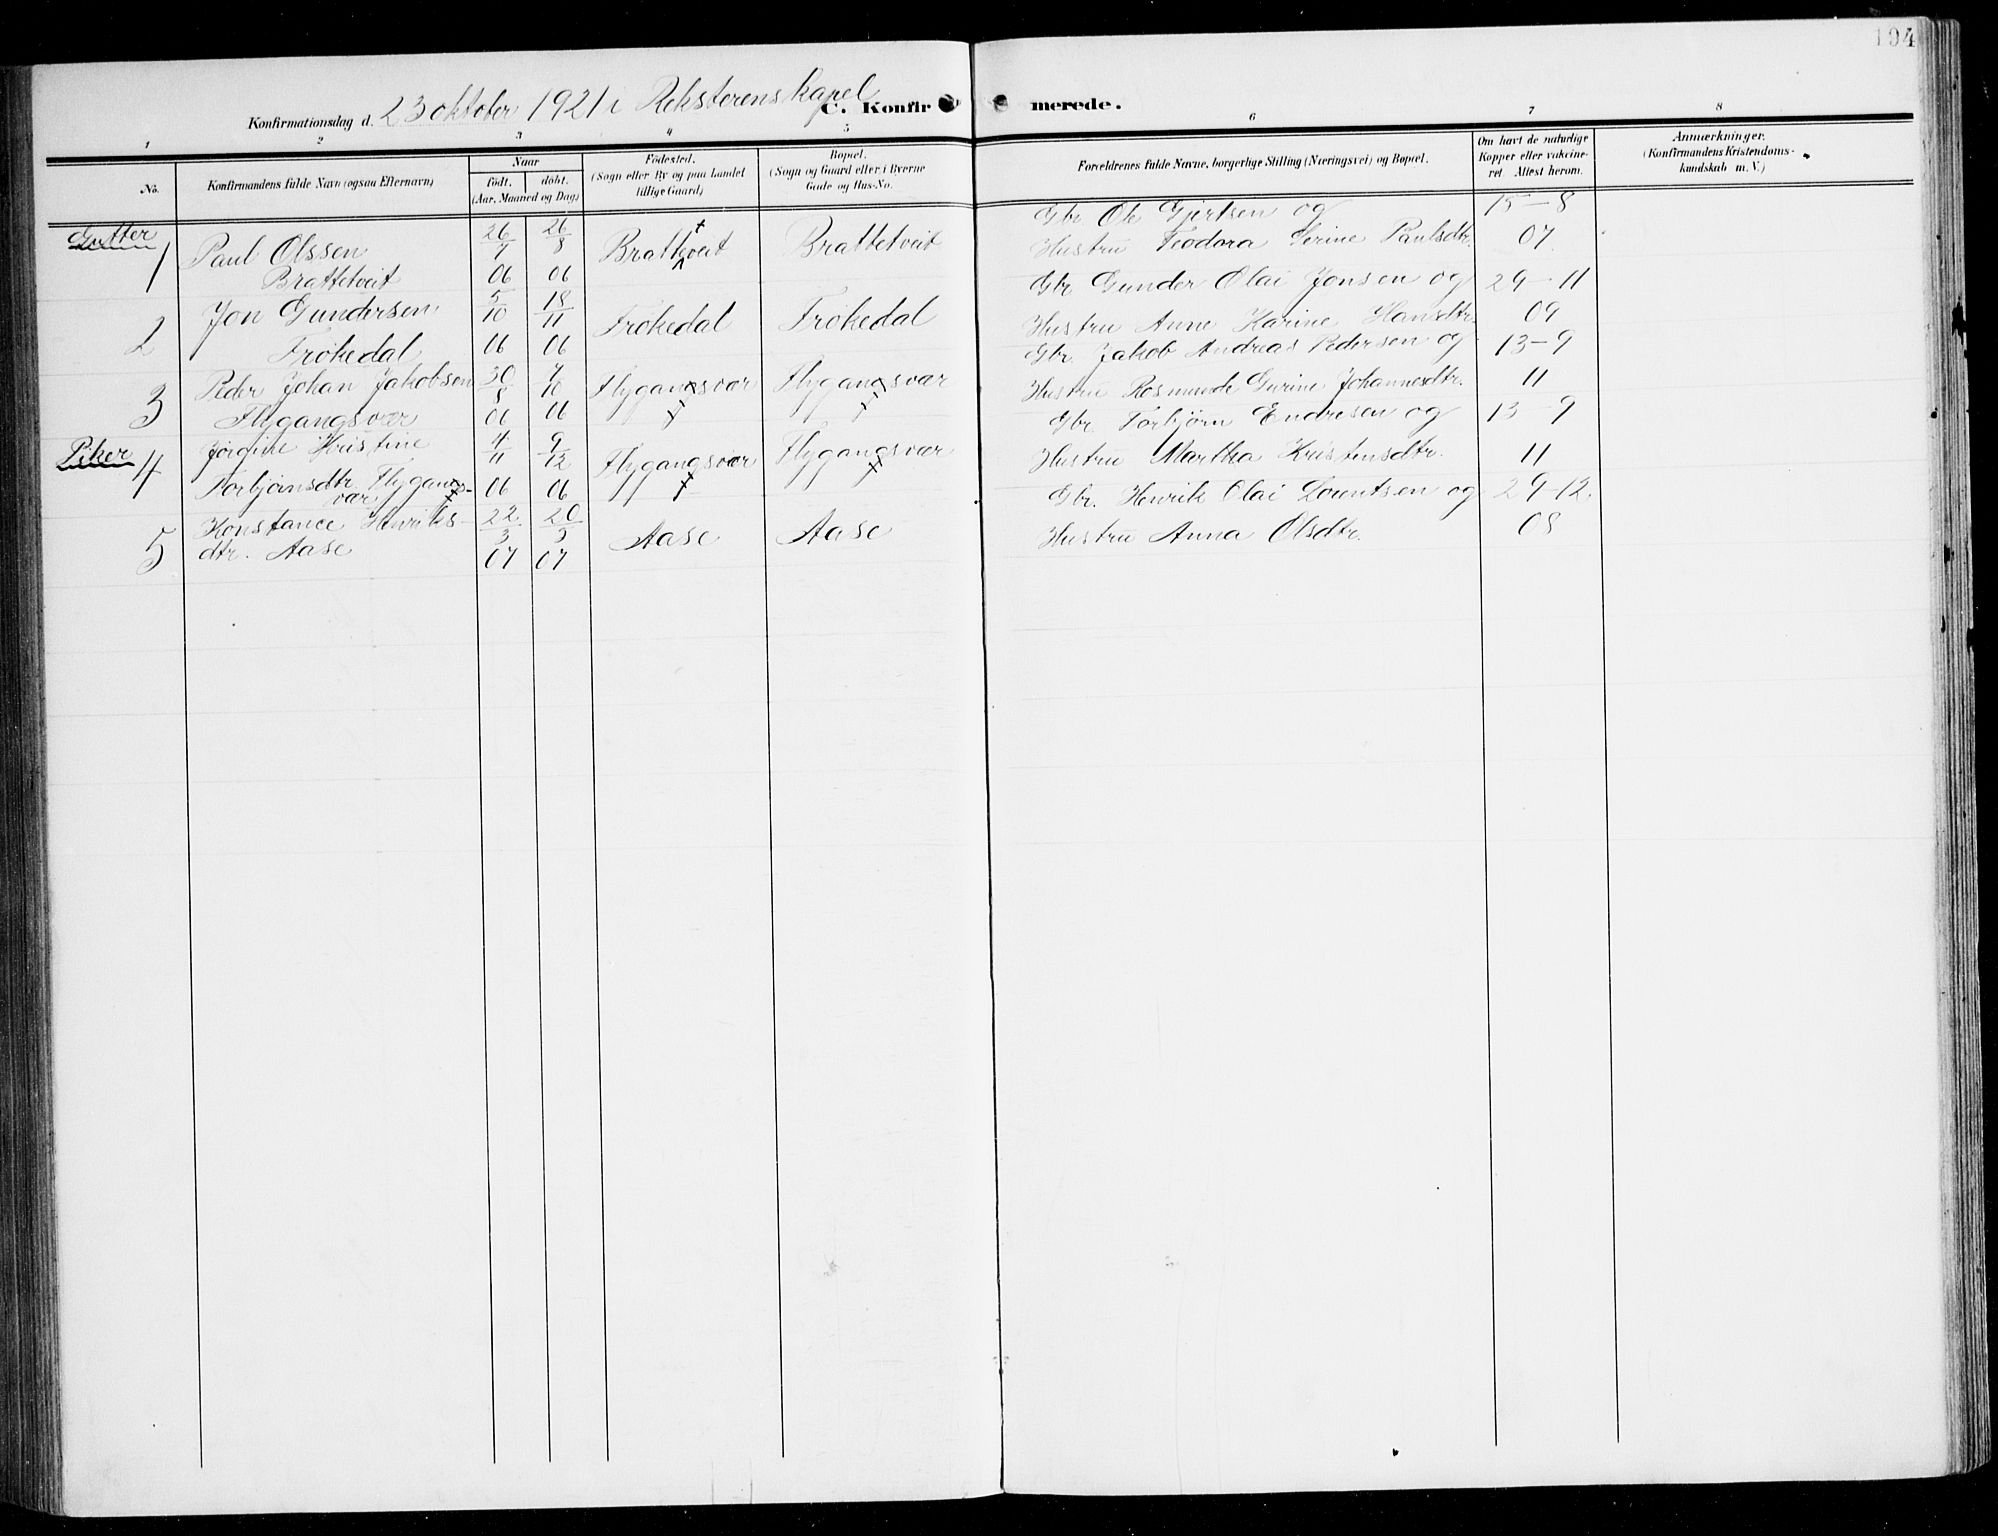 104
Konfirmationsdag d. 23 oktober 1921 i Reksterens kapel
C. Konfir merede.
1 2 3 4 5 6 7 8
No.
Konfirmandens fulde Navn (ogsaa Efternavn)
Naar
födt. döbt.
(Aar, Maaned og Dag)
Födested.
(Sogn eller By og paa Landet
tillige Gaard)
Bopæl.
(Sogn og Gaard eller i Byerne
Gade og Hus-No.
Forældrenes fulde Navne, borgerlige Stilling (Næringsvei) og Bopæl.
Om havt de naturlige
Kopper eller vakcine-
ret Attest herom.
Anmærkninger.
(Konfirmandens Kristendoms-
kundskab m. V.)
Gutter
1 Paul Olssen 26/7 26/8 Bratteveit Brattetveit Gbr. Ole Gjertsen og 15-8
Brattetveit 06 06 Hustru Teodora Serine Paulsdtr. 07
2 Jon Gundersen 5/10 18/11 Frökedal Frökedal Gbr Gunder Olai Jonsen og 29-11
Frökedal 06 06 Hustru Anne Karine Hansdtr. 09
3 Peder Johan Jakobsen 30/8 7/10 Flygangsvær Flygangsvær Gbr. Jakob Andreas Pedersen og 13-9
Flygangsvær 06 06 Hustru Rosmunde Gurine Johannesdtr. 11
Piker
4 Jörgine Kristine 4/11 9/12 Flygangsvær Flygangsvær Gbr Torbjörn Endresen og 13-9
Torbjörnsdtr. Flygangs- 06 06 Hustru Martha Kristensdtr. 11
vær
5 Konstance Henriks- 22/3 20/5 Aase Aase Gbr. Henrik Olai Lauritsen og 29-12.
dtr. Aase 07 07 Hustru Anna Olsdtr. 08